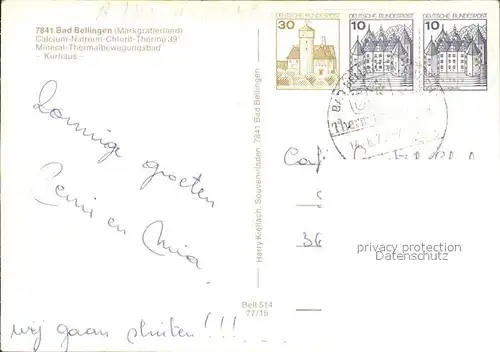 7841 Bad Bellingen (Markgräflerland)
Calcium-Natrium-Chlorit-Therme 39°
Mineral-Thermalbewegungsbad
– Kurhaus –
DEUTSCHE BUNDESPOST
30
DEUTSCHE BUNDESPOST
10
DEUTSCHE BUNDESPOST
10
BAD BELLINGEN
Therm
Zonnige groeten
en Mia
wij gaan sluiten!!!
Harry Kießlach, Souvenirladen, 7841 Bad Bellingen
Bell 514
77/15
36
privacy protection
Datenschutz